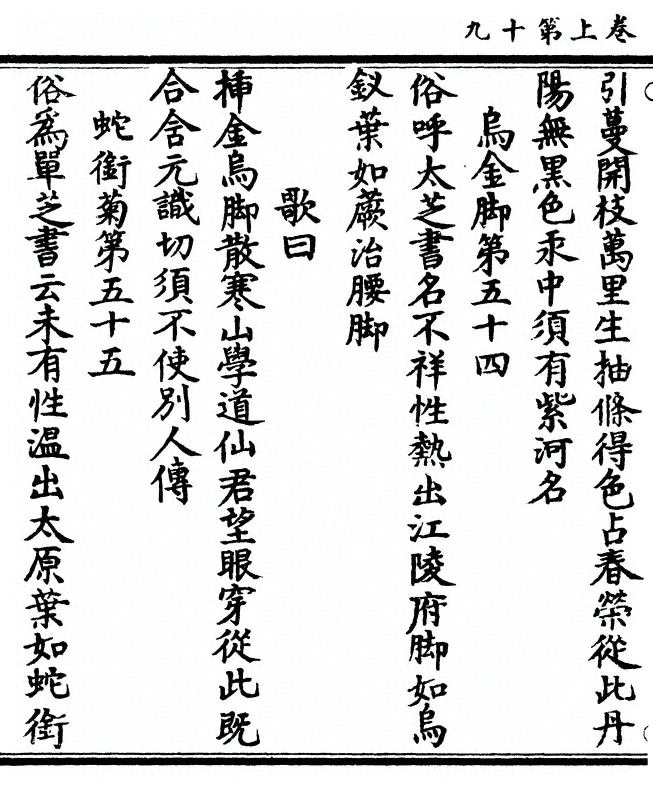 卷上第十九
引蔓開枝萬里生抽條得色占春榮從此丹
陽無黑色汞中須有紫河名
烏金脚第五十四
俗呼太芝書名不祥性熱出江陵府脚如烏
釵葉如蕨治腰脚
歌曰
挿金烏脚散寒山學道仙君望眼穿從此既
合含元識切須不使別人傳
蛇銜菊第五十五
俗爲單芝書云未有性溫出太原葉如蛇銜